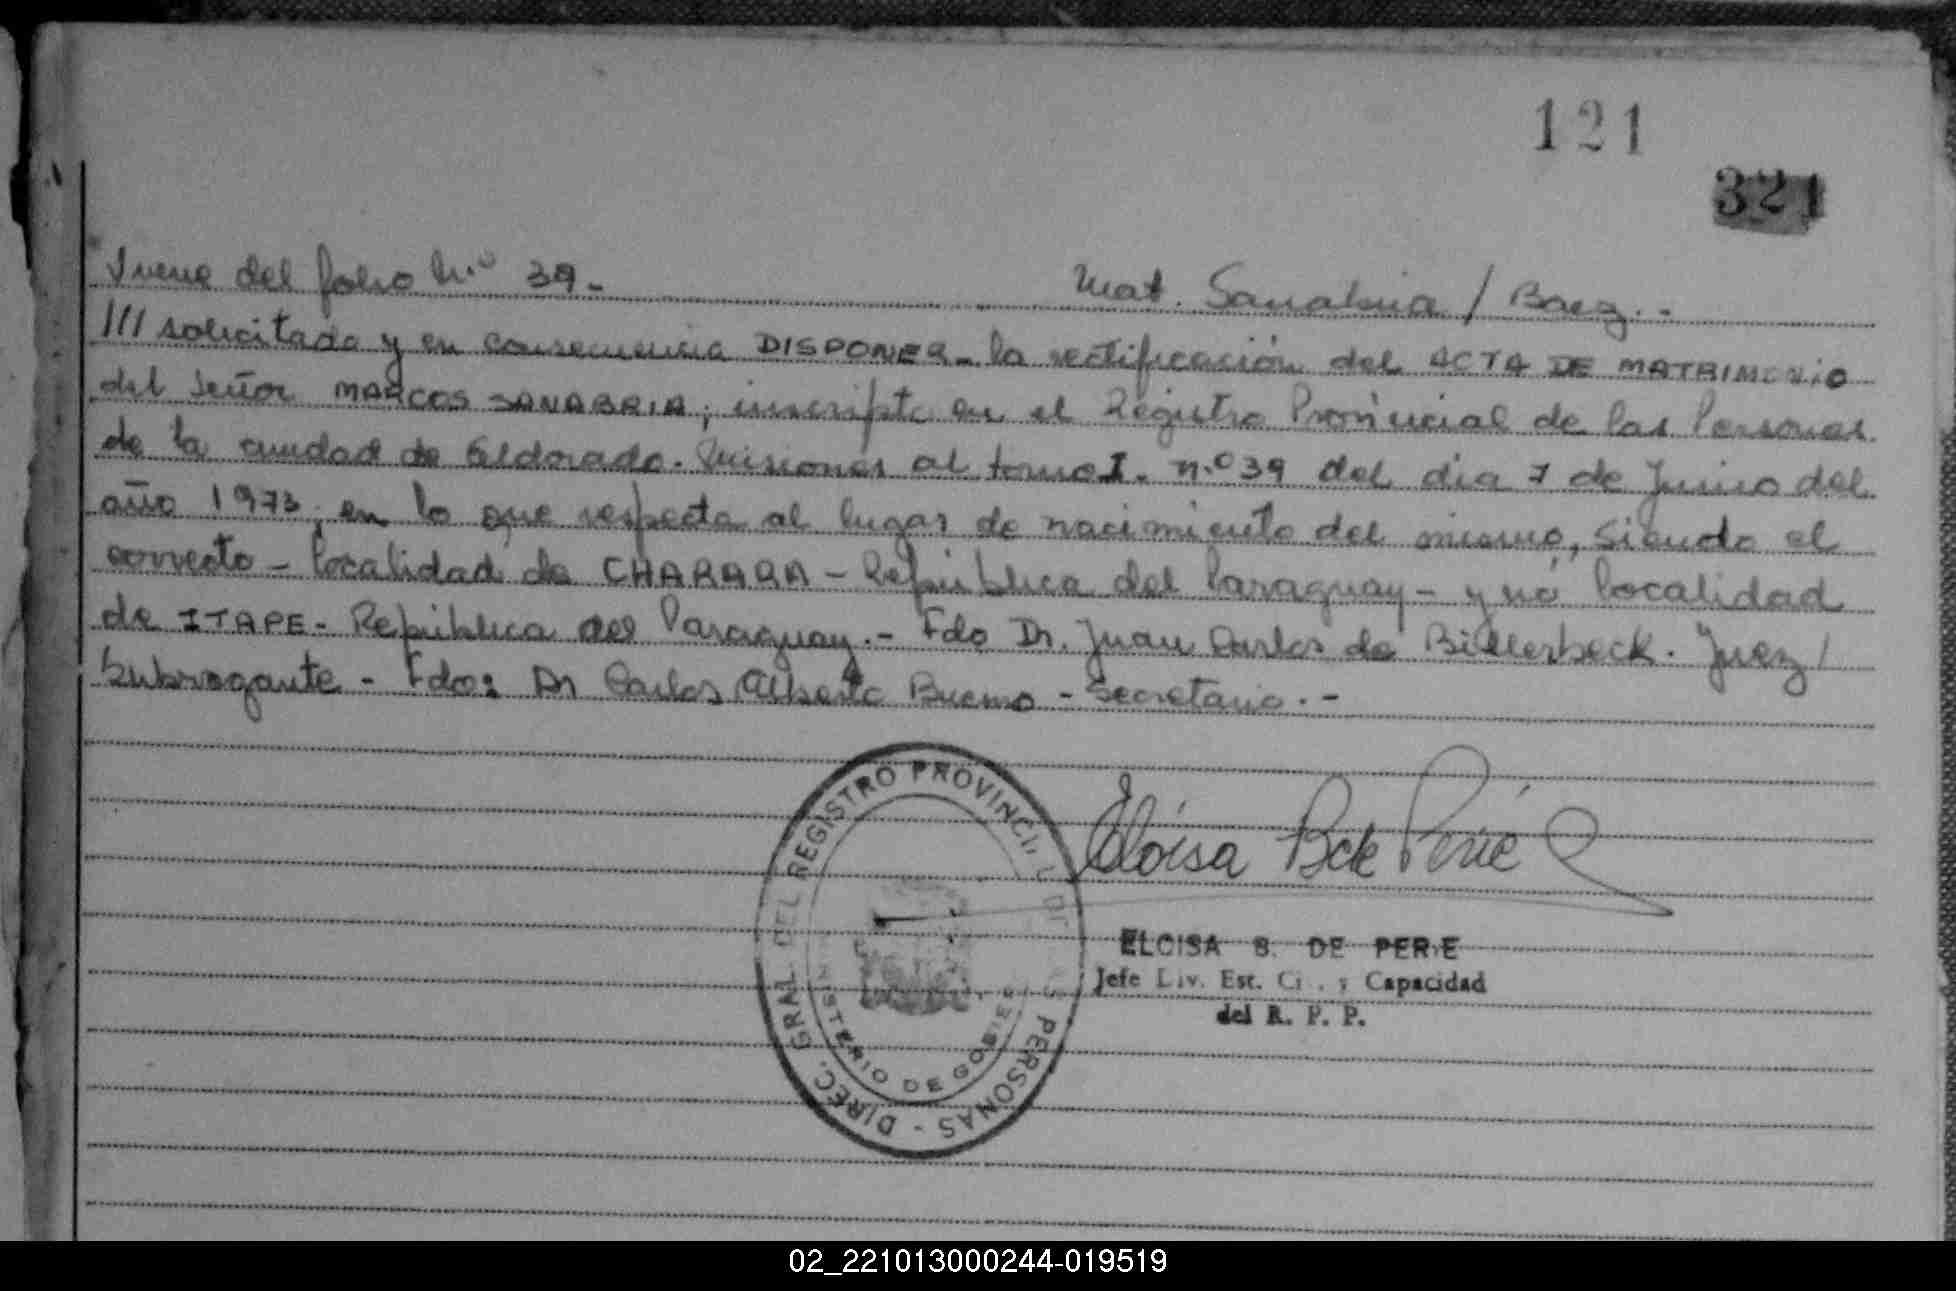 121
321
Viene del folio N.º 39.-
Mat. Sanabria / Baez.-
/// solicitada y en consecuencia DISPONER- la rectificación del ACTA DE MATRIMONIO
del señor MARCOS SANABRIA; inscripta en el Registro Provincial de las Personas
de la ciudad de Eldorado. Misiones al tomo I. n.º 39 del día 7 de Junio del
año 1973, en lo que respecta al lugar de nacimiento del mismo, siendo el
correcto - localidad de CHARARA - República del Paraguay - y no localidad
de ITAPE - República del Paraguay.- Fdo Dr. Juan Carlos de Billerbeck. Juez /
Subrogante - Fdo: Dr Carlos Alberto Bueno - Secretario.-
DIREC. GRAL. DEL REGISTRO PROVINCIAL DE LAS PERSONAS -
MINISTERIO DE GOBIERNO
Eloísa B de Perié
ELOISA B. DE PERIE
Jefe Div. Est. Civ. y Capacidad
del R. P. P.
02_221013000244-019519